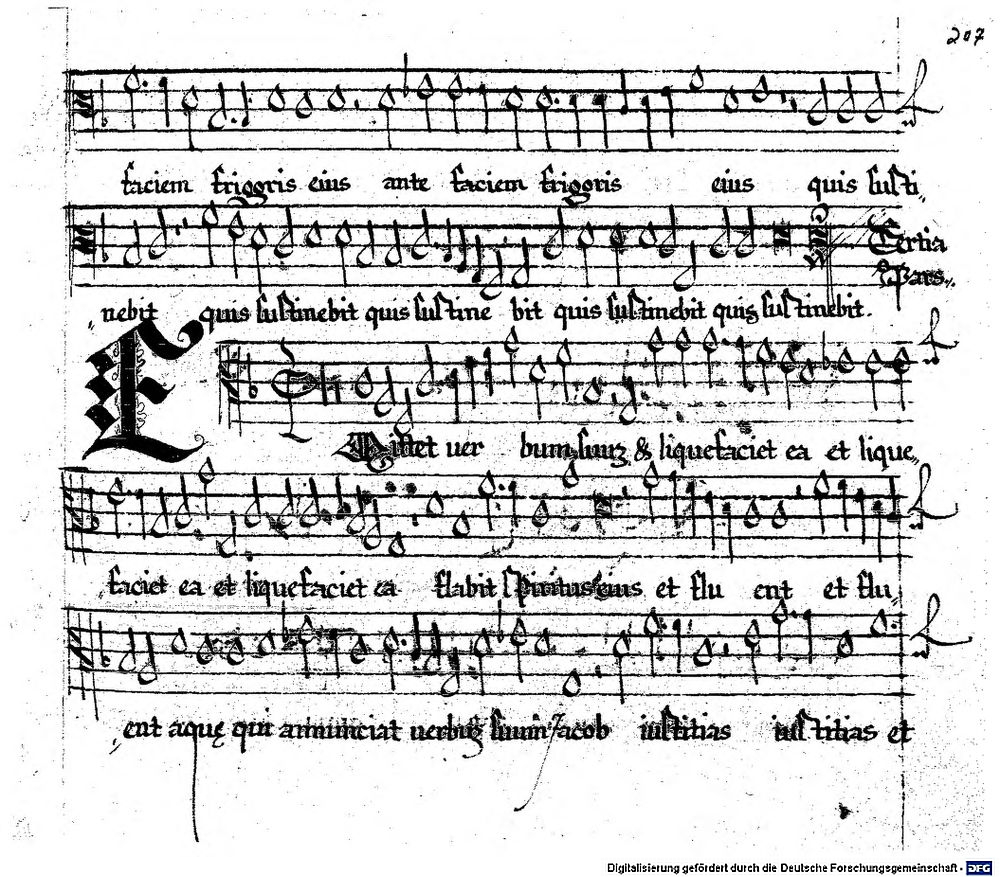 207
faciem frigoris eius ante faciem frigoris eius quis susti„
Tertia
Pars.
„nebit quis sustinebit quis sustine bit quis sustinebit quis sustinebit.
E
Mittet ver bum suuʒ & liquefaciet ea et lique„
faciet ea et liquefaciet ea flabit spiritus eius et flu ent et flu„
„ent aquę qui annunciat verbuʒ suum Jacob iustitias iustitias et
Digitalisierung gefördert durch die Deutsche Forschungsgemeinschaft - DFG